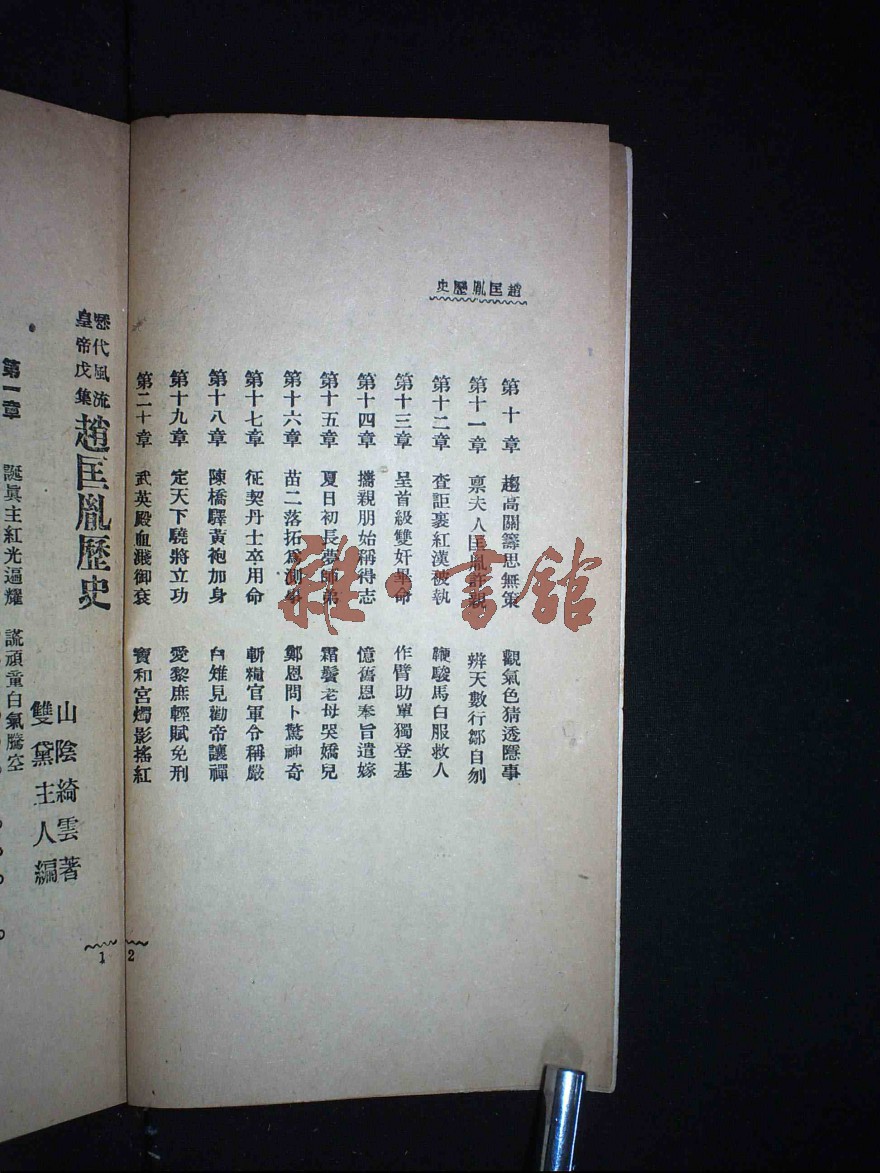 趙匡胤歷史
第十章　趨高關籌思無策　觀氣色猜透隱事
第十一章　稟夫人匡胤許親　辨天數行鄒自刎
第十二章　查詎裹紅漢被執　鞭駿馬白服救人
第十三章　呈首級雙奸畢命　作臂助單獨登基
第十四章　攜親朋始稱得志　憶舊恩奉旨遣嫁
第十五章　夏日初長夢師弟　霜鬢老母哭嬌兒
第十六章　苗二落拓為測學　鄭恩問卜驚神奇
第十七章　征契丹士卒用命　斬糧官軍令稱嚴
第十八章　陳橋驛黃袍加身　白雉見勸帝讓禪
第十九章　定天下驍將立功　愛黎庶輕賦免刑
第二十章　武英殿血濺御袞　寶和宮燭影搖紅
2
歷代風流
皇帝戊集
趙匡胤歷史
山陰綺雲著
雙黛主人編
第一章　誕真主紅光遍耀　謊頑童白氣騰空
1
雜·書館